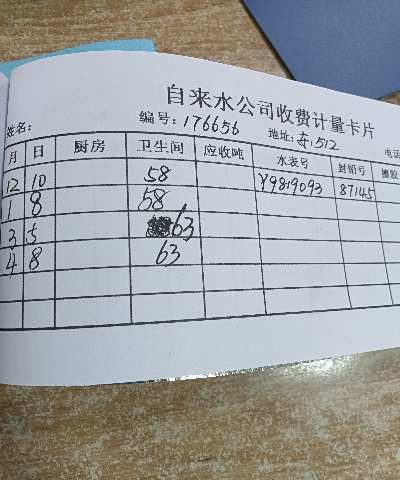 自来水公司收费计量卡片
姓名: 编号:176656 地址:东1512 电话
月 日 厨房 卫生间 应收吨 水表号 封铅号
12 10 58 Y9819093 87145
1 8 58
3 5 63
4 8 63